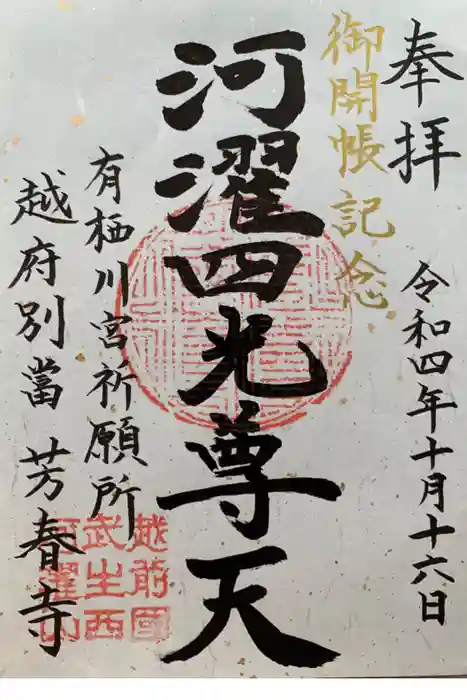 奉拝
令和四年十月十六日
御開帳記念
河濯四光尊天
有栖川宮祈願所
越府別當 芳春寺
越前國
武生西
河濯山